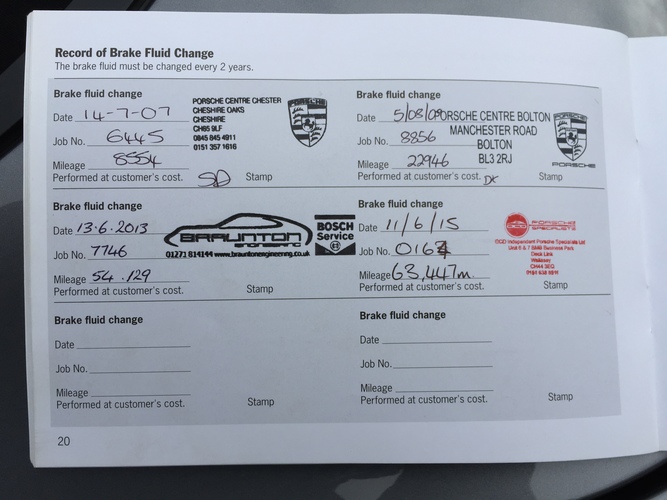 Record of Brake Fluid Change
The brake fluid must be changed every 2 years.
Brake fluid change
Date 14-7-07
Job No. 6445
Mileage 8554
Performed at customer's cost.
Stamp
PORSCHE CENTRE CHESTER
CHESHIRE OAKS
CHESHIRE
CH65 9LF
0845 845 4911
0151 357 1616
PORSCHE
Brake fluid change
Date 5/08/09
Job No. 8856
Mileage 22946
Performed at customer's cost.
Stamp
PORSCHE CENTRE BOLTON
MANCHESTER ROAD
BOLTON
BL3 2RJ
PORSCHE
PORSCHE
Brake fluid change
Date 13.6.2013
Job No. 7746
Mileage 54.129
Performed at customer's cost.
Stamp
BRAUNTON
engineering
01271 814144 www.brauntonengineering.co.uk
BOSCH
Service
Brake fluid change
Date 11/6/15
Job No. 0167
Mileage 63,447m
Performed at customer's cost.
Stamp
PORSCHE
SPECIALISTS
Independent Porsche Specialists Ltd
Business Park
Dock Link
Wallasey
Brake fluid change
Date
Job No.
Mileage
Performed at customer's cost.
Stamp
Brake fluid change
Date
Job No.
Mileage
Performed at customer's cost.
Stamp
20